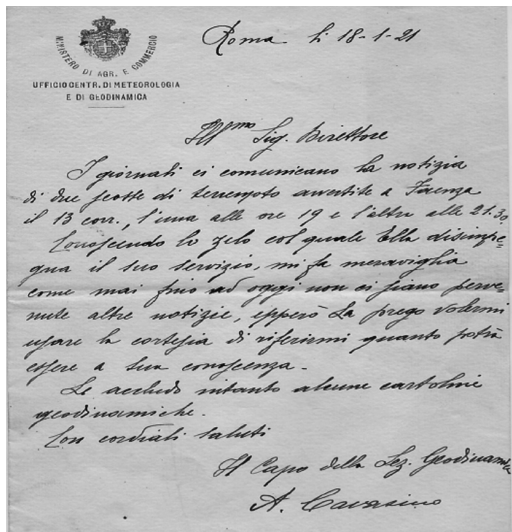 MINISTERO DI AGR. E COMMERCIO
UFFICIO CENTR. DI METEOROLOGIA
E DI GEODINAMICA
Roma li 18-1-21
Ill.mo Sig. Direttore
I giornali ci comunicano la notizia
di due scosse di terremoto avvertite a Faenza
il 13 corr., l'una alle ore 19 e l'altra alle 21.30
Conoscendo lo zelo col quale Ella disimpe-
gna il suo servizio, mi fa meraviglia
come mai fino ad oggi non ci siano perve-
nute altre notizie, epperò La prego volermi
usare la cortesia di riferirmi quanto potrà
essere a sua conoscenza.-
Le accludo intanto alcune cartoline
geodinamiche.
Con cordiali saluti
Il Capo della Sez. Geodinamica
A. Cavasino